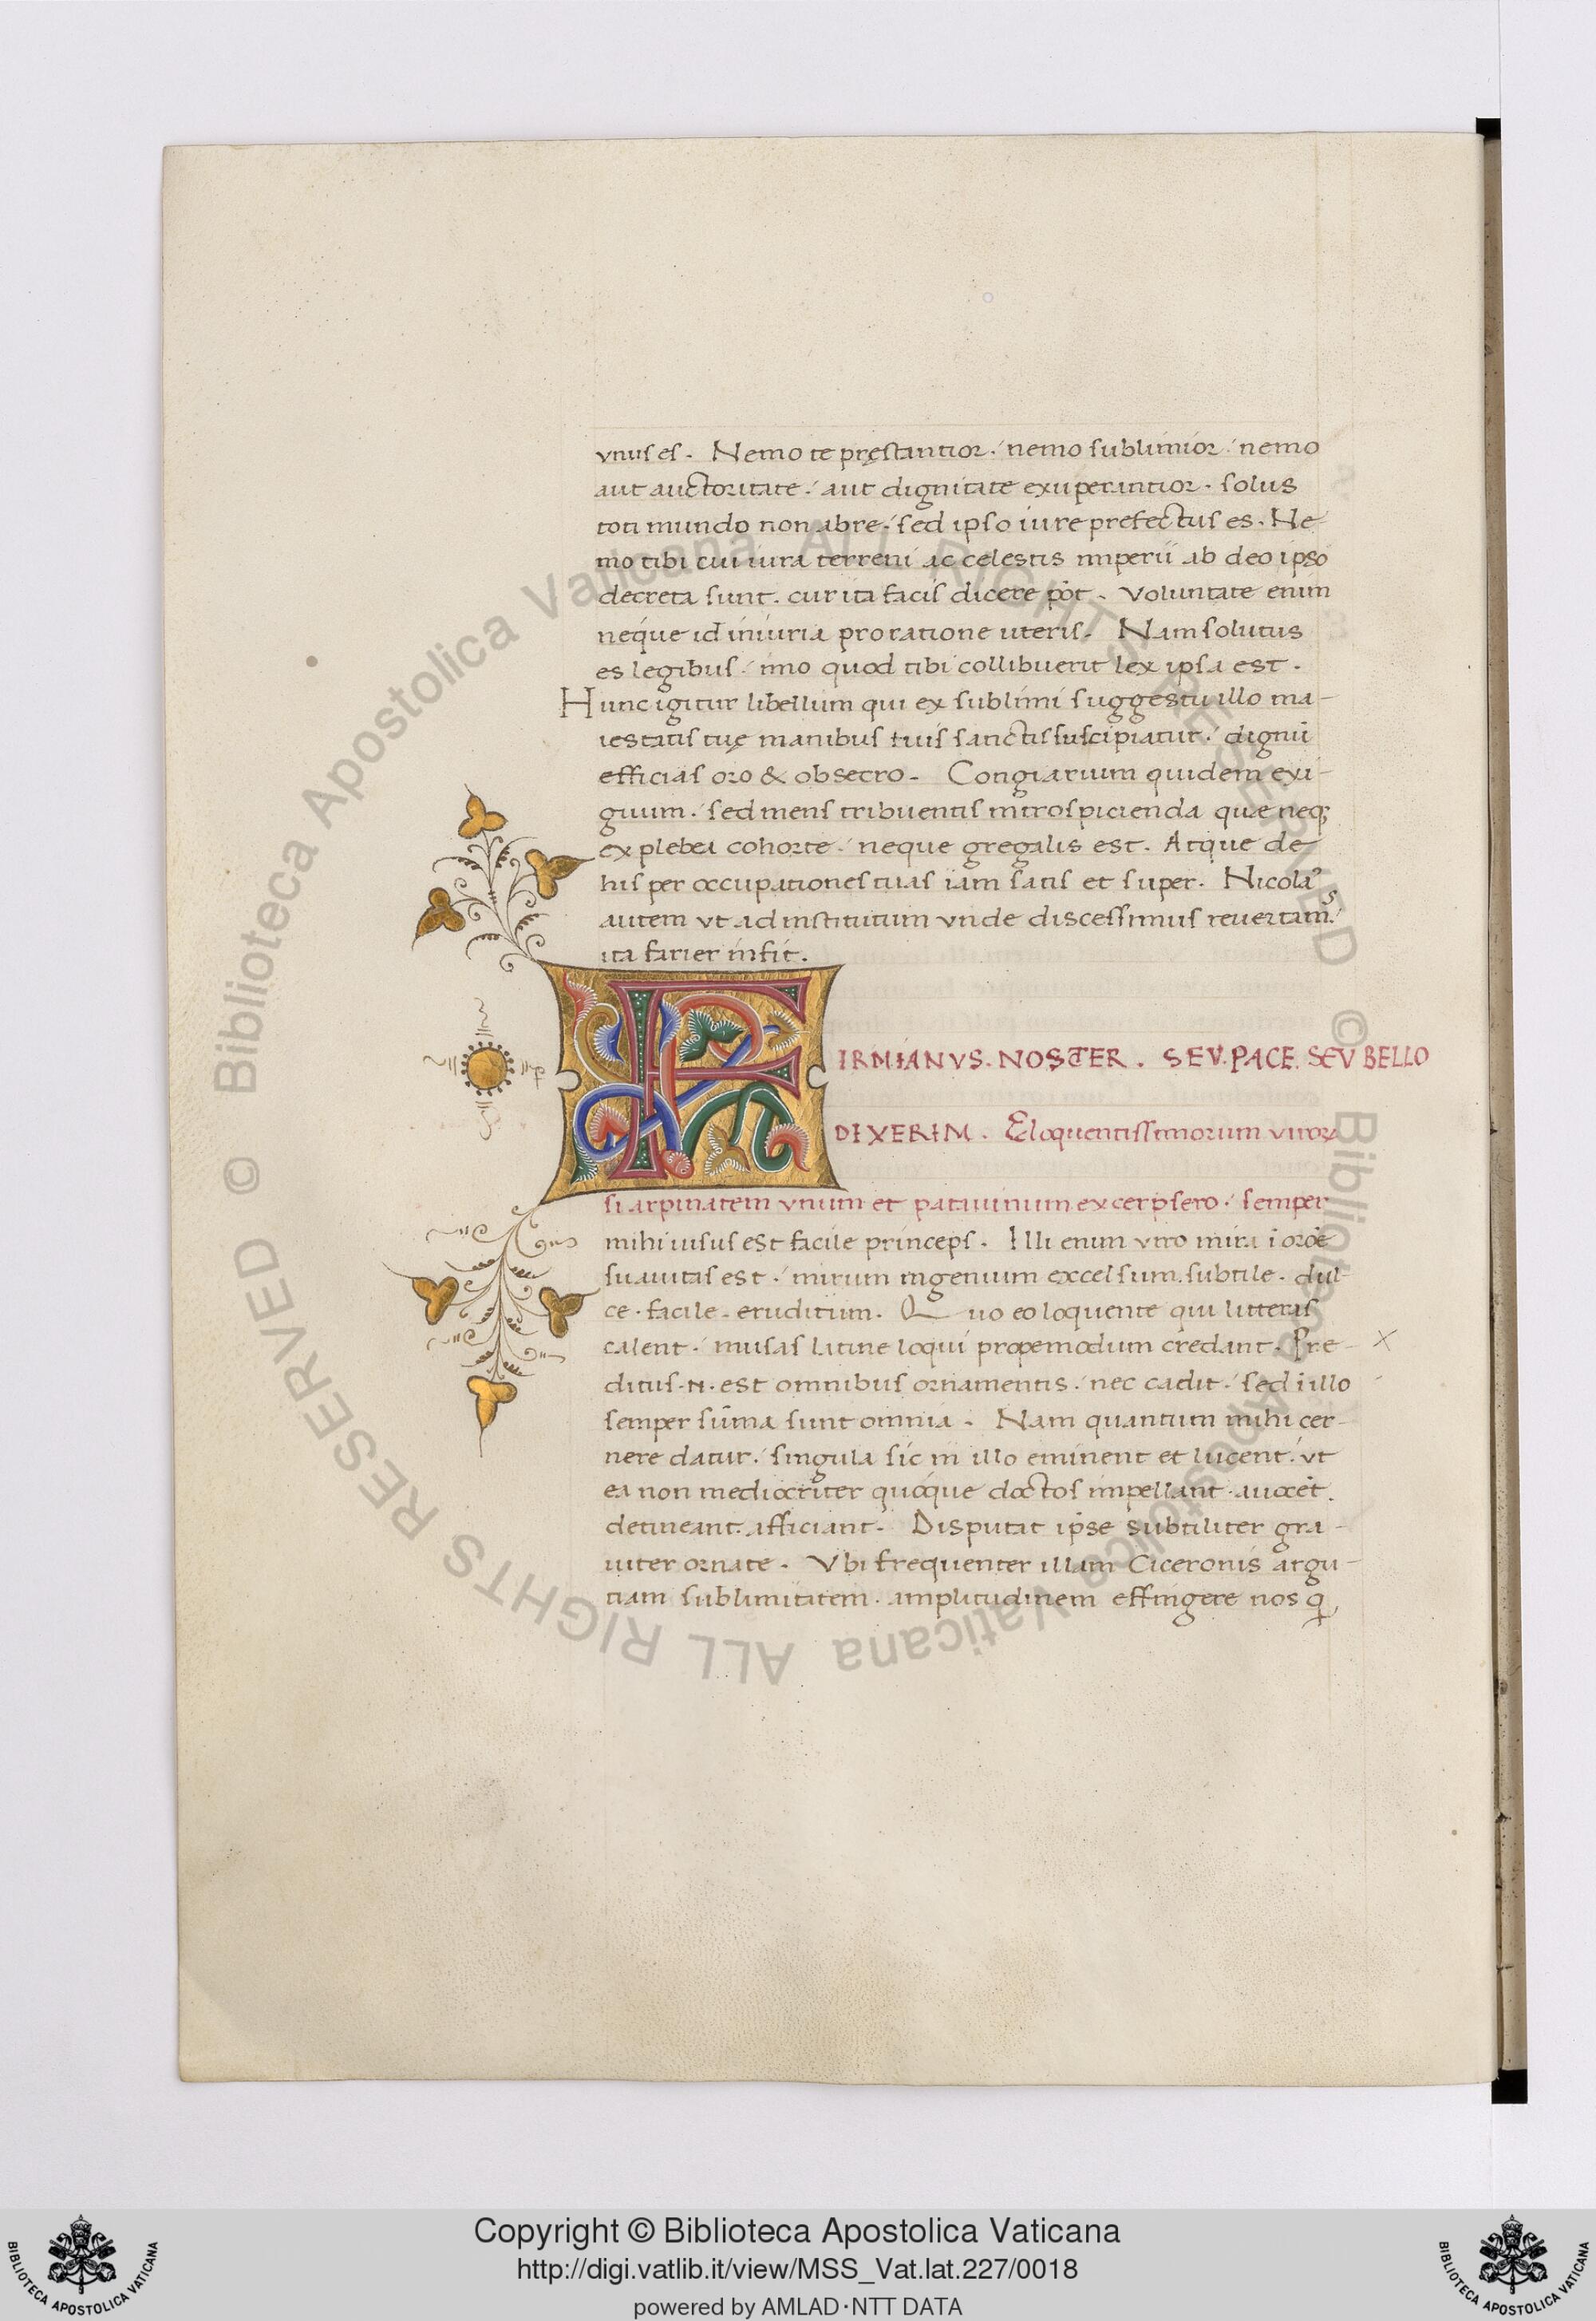 vnus es. Nemo te pręstantior. nemo sublimior. nemo
aut auctoritate. aut dignitate exuperantior. solus
toti mundo non abre. sed ipso iure prefectus es. Ne
mo tibi cui iura terreni ac celestis imperii ab deo ipso
decreta sunt. cur ita facis dicere pōt. Voluntate enim
neque id iniuria pro ratione uteris. Nam solutus
es legibus. imo quod tibi collibuerit lex ipsa est.
Hunc igitur libellum qui ex sublimi suggestu illo ma-
iestatis tuę manibus tuis sanctis suscipiatur. dignū
efficias oro & obsecro. Congiarium quidem exi-
guum. sed mens tribuentis introspicienda quæ neq;
ex plebeia cohorte. neque gregalis est. Atque de
his per occupationes tuas iam satis et super. Nicolaꝰ
autem vt ad institutum vnde discessimus reuertamꝰ
ita farier infit.
FIRMIANVS. NOSTER. SEV. PACE. SEV BELLO
DIXERIM. Eloquentissimorum viroꝝ
si arpinatem vnum et patauinum excerpsero. semper
mihi uisus est facile princeps. Illi enim viro mira ī orōe
suauitas est. mirum ingenium excelsum. subtile. dul-
ce. facile. eruditum. Quo eo loquente qui litteris
calent. musas latine loqui propemodum credant. Pre-
ditus. n. est omnibus ornamentis. nec cadit. sed ī illo
semper sūma sunt omnia. Nam quantum mihi cer-
nere datur. singula sic in illo eminent et lucent. vt
ea non mediocriter quoque doctos impellant
detineant. afficiant. Disputat ipse subtiliter gra-
uiter ornate. Vbi frequenter illam Ciceronis argu-
tiam sublimitatem. amplitudinem effingere nos
© Biblioteca Apostolica Vaticana ALL RIGHTS RESERVED © Biblioteca Apostolica Vaticana ALL RIGHTS RESERVED
Copyright © Biblioteca Apostolica Vaticana
http://digi.vatlib.it/view/MSS_Vat.lat.227/0018
powered by AMLAD·NTT DATA
BIBLIOTECA APOSTOLICA VATICANA
BIBLIOTECA APOSTOLICA VATICANA